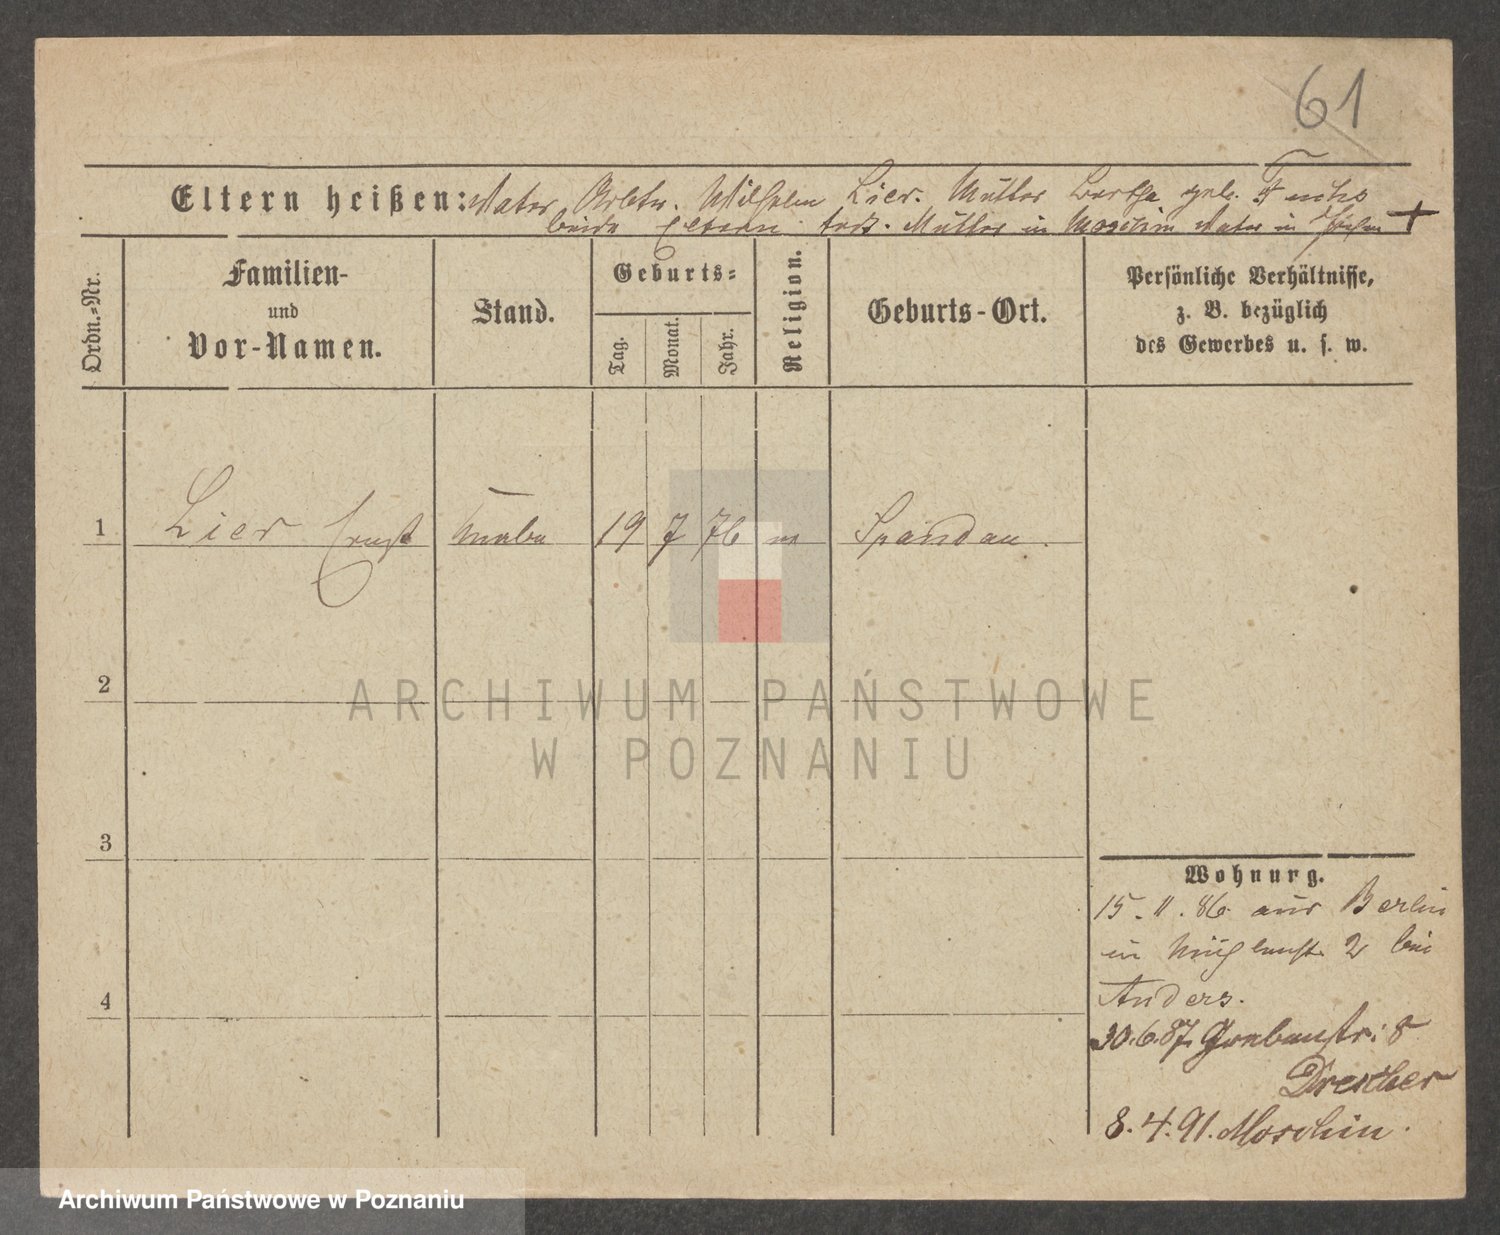 61
Eltern heißen: Vater Arbtr. Wilhelm Lier. Mutter Bertha geb. Fuchs
beide Eltern todt. Mutter in Moschin Vater in
Ordn.-Nr.
Familien-
und
Vor-Namen.
Stand.
Geburts-
Tag.
Monat.
Jahr.
Religion.
Geburts-Ort.
Persönliche Verhältnisse,
z. B. bezüglich
des Gewerbes u. s. w.
1 Lier Ernst Knabe 19 7 76 Spandau.
2
3
4
Wohnung.
15. 11. 86. aus Berlin
in 2 bei
Anders.
30.6.87. Grabenstr: 8
Drescher
8. 4. 91. Moschin.
ARCHIWUM PAŃSTWOWE
W POZNANIU
Archiwum Państwowe w Poznaniu